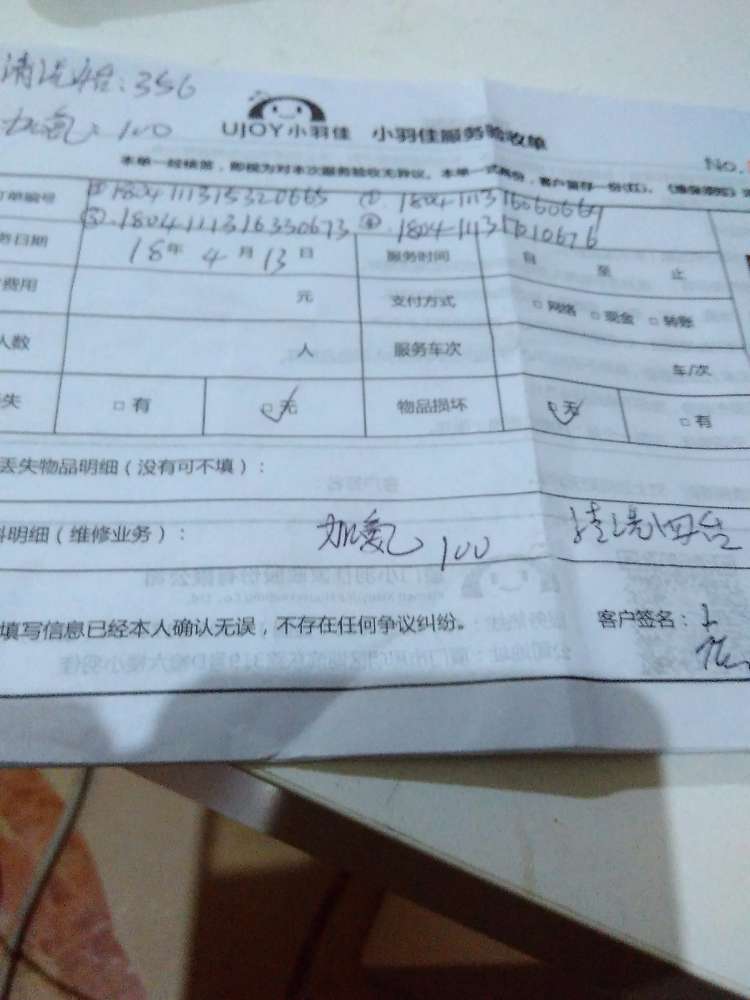 356
加氨:100
UJOY小羽佳 小羽佳服务验收单
No.
本单一经核签,即视为对本次服务验收无异议。本单一式两份,客户留存一份(红)。
单编号 ①1804111315320665 ②18041113160
③18041113163 50673 ④1804111317010676
务日期 18年4月13日 服务时间 自 至 止
费用 元 支付方式 □网络 □现金 □转账
人数 人 服务车次 车/次
失 □有 □无 物品损坏 □无 □有
丢失物品明细(没有可不填):
料明细(维修业务): 加氨 100 清洗四台
填写信息已经本人确认无误,不存在任何争议纠纷。 客户签名: